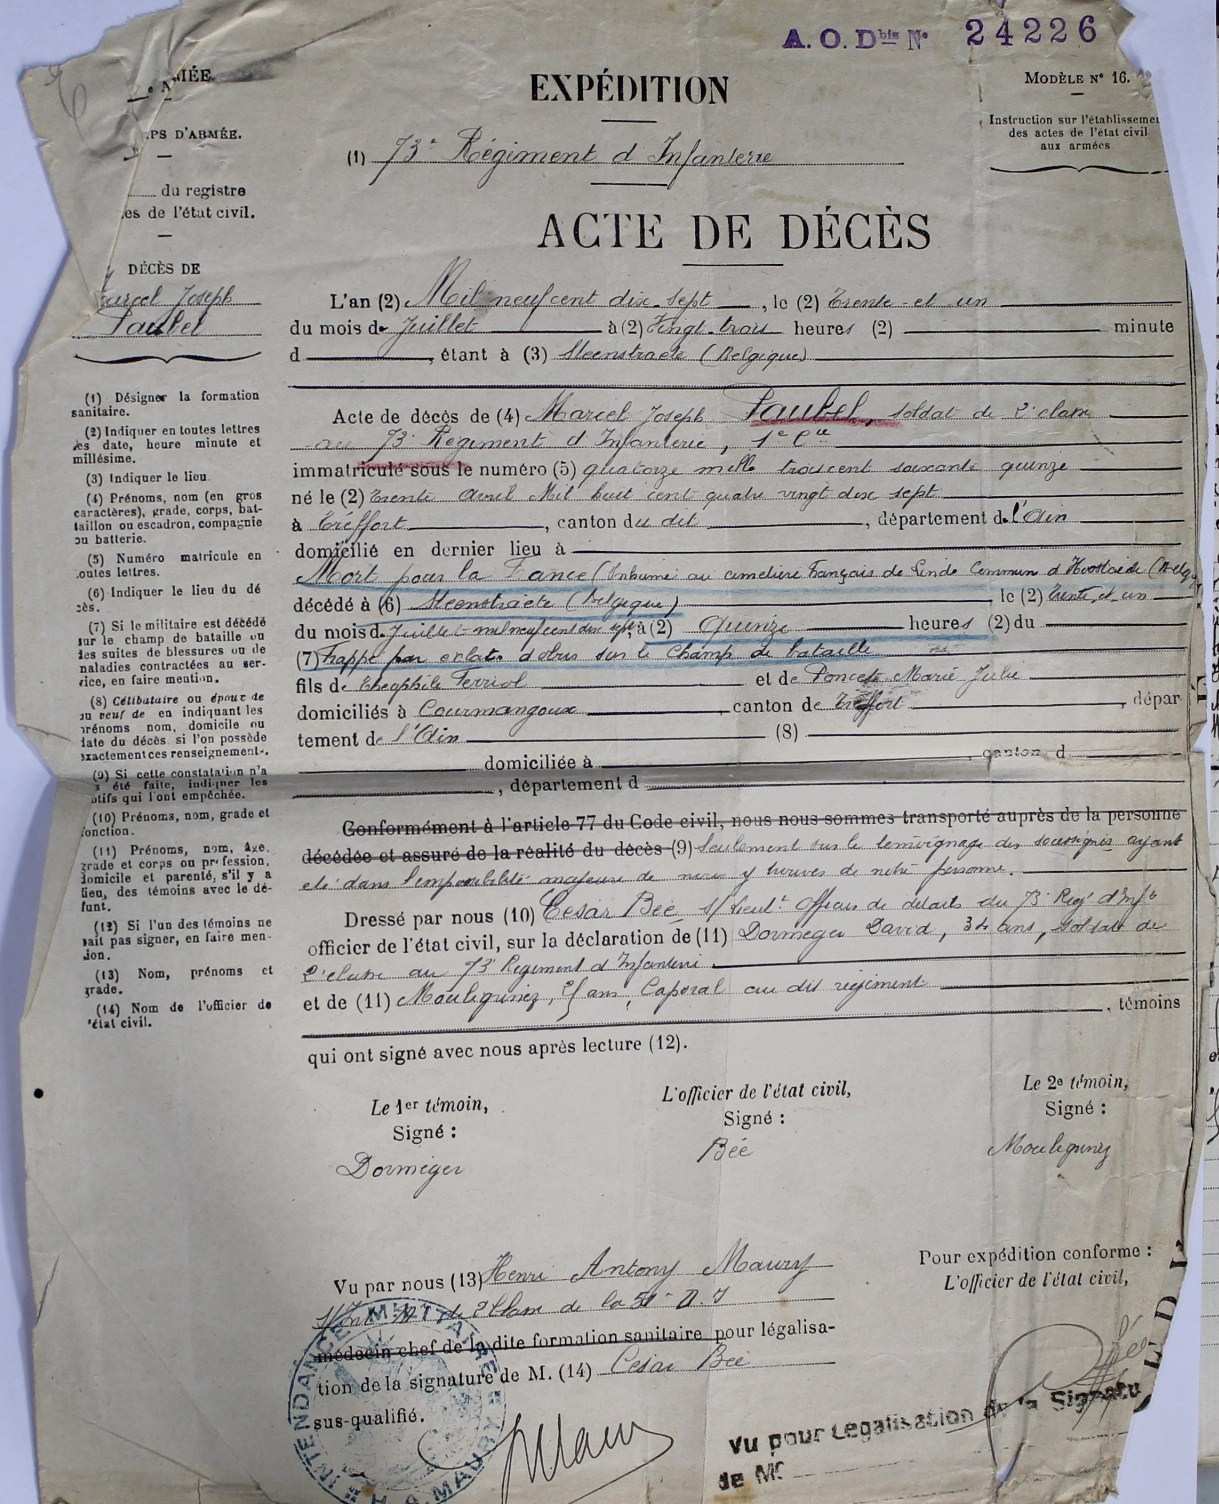 A. O. Dbis N° 24226
MÉE.
EXPÉDITION
MODÈLE N° 16.
PS D'ARMÉE.
Instruction sur l'établisseme
des actes de l'état civil
aux armées
(1) 73e Régiment d Infanterie
du registre
es de l'état civil.
ACTE DE DÉCÈS
DÉCÈS DE
arcel Joseph
Paubel
L'an (2) Mil neuf cent dix-sept, le (2) Trente-et un
du mois de Juillet à (2) Vingt-trois heures (2) minute
d , étant à (3) Steenstraete (Belgique)
Acte de décès de (4) Marcel Joseph Paubel, soldat de 2e classe
au 73e Régiment d Infanterie, 1e Cie
immatriculé sous le numéro (5) quatorze mille trois cent soixante quinze
né le (2) Trente avril Mil huit cent quatre vingt dix sept
à Tréffort, canton du dit, département de l'Ain
domicilié en dernier lieu à
Mort pour la France (Inhumé au cimetière Français de Linde Commun d (Belg
décédé à (6) Steenstraete (Belgique) le (2) Trente et un
du mois de Juillet mil neuf cent dix sept, à (2) Quinze heures (2) du
(7) frappé par eclats d'obus sur le Champ de bataille
fils de Théophile et de Poncet Marie Julie
domiciliés à Courmangoux, canton de Tréffort, dépar-
tement de l'Ain (8)
domiciliée à , canton d
, département d
Conformément à l'article 77 du Code civil, nous nous sommes transporté auprès de la personne
décédée et assuré de la réalité du décès (9) Seulement sur le témoignage des soussignés ayant
été dans l'impossibilité majeure de nous y trouver de notre personne.
Dressé par nous (10) César Bée s/lieut Officier de détails du 73e Regt d'Infie
officier de l'état civil, sur la déclaration de (11) Dormeger David, 34 ans, Soldat de
2e classe au 73e Régiment d'Infanterie
et de (11) Moulequinez, ans, Caporal au dit régiment, témoins
qui ont signé avec nous après lecture (12).
(1) Désigner la formation
sanitaire.
(2) Indiquer en toutes lettres
les date, heure minute et
millésime.
(3) Indiquer le lieu.
(4) Prénoms, nom (en gros
caractères), grade, corps, bat-
taillon ou escadron, compagnie
ou batterie.
(5) Numéro matricule en
toutes lettres.
(6) Indiquer le lieu du dé
cès.
(7) Si le militaire est décédé
sur le champ de bataille ou
des suites de blessures ou de
maladies contractées au ser-
vice, en faire mention.
(8) Célibataire ou époux de
ou veuf de en indiquant les
prénoms nom, domicile ou
date du décès si l'on possède
exactement ces renseignements.
(9) Si cette constatation n'a
été faite, indiquer les
otifs qui l'ont empêchée.
(10) Prénoms, nom, grade et
fonction.
(11) Prénoms, nom, âge,
grade et corps ou profession,
domicile et parenté, s'il y a
lieu, des témoins avec le dé-
funt.
(12) Si l'un des témoins ne
sait pas signer, en faire men-
tion.
(13) Nom, prénoms et
grade.
(14) Nom de l'officier de
l'état civil.
Le 1er témoin,
Signé :
Dormeger
L'officier de l'état civil,
Signé :
Bée
Le 2e témoin,
Signé :
Moulequinez
Vu par nous (13) Henri Antony Maury
de 2e Classe de la 51e D. I
médecin chef de la dite formation sanitaire pour légalisa-
tion de la signature de M. (14) César Bée
sus-qualifié.
Pour expédition conforme :
L'officier de l'état civil,
Bée
INTENDANCE MILITAIRE
A. MAURY
Vu pour Légalisation de la Signatu
de M.